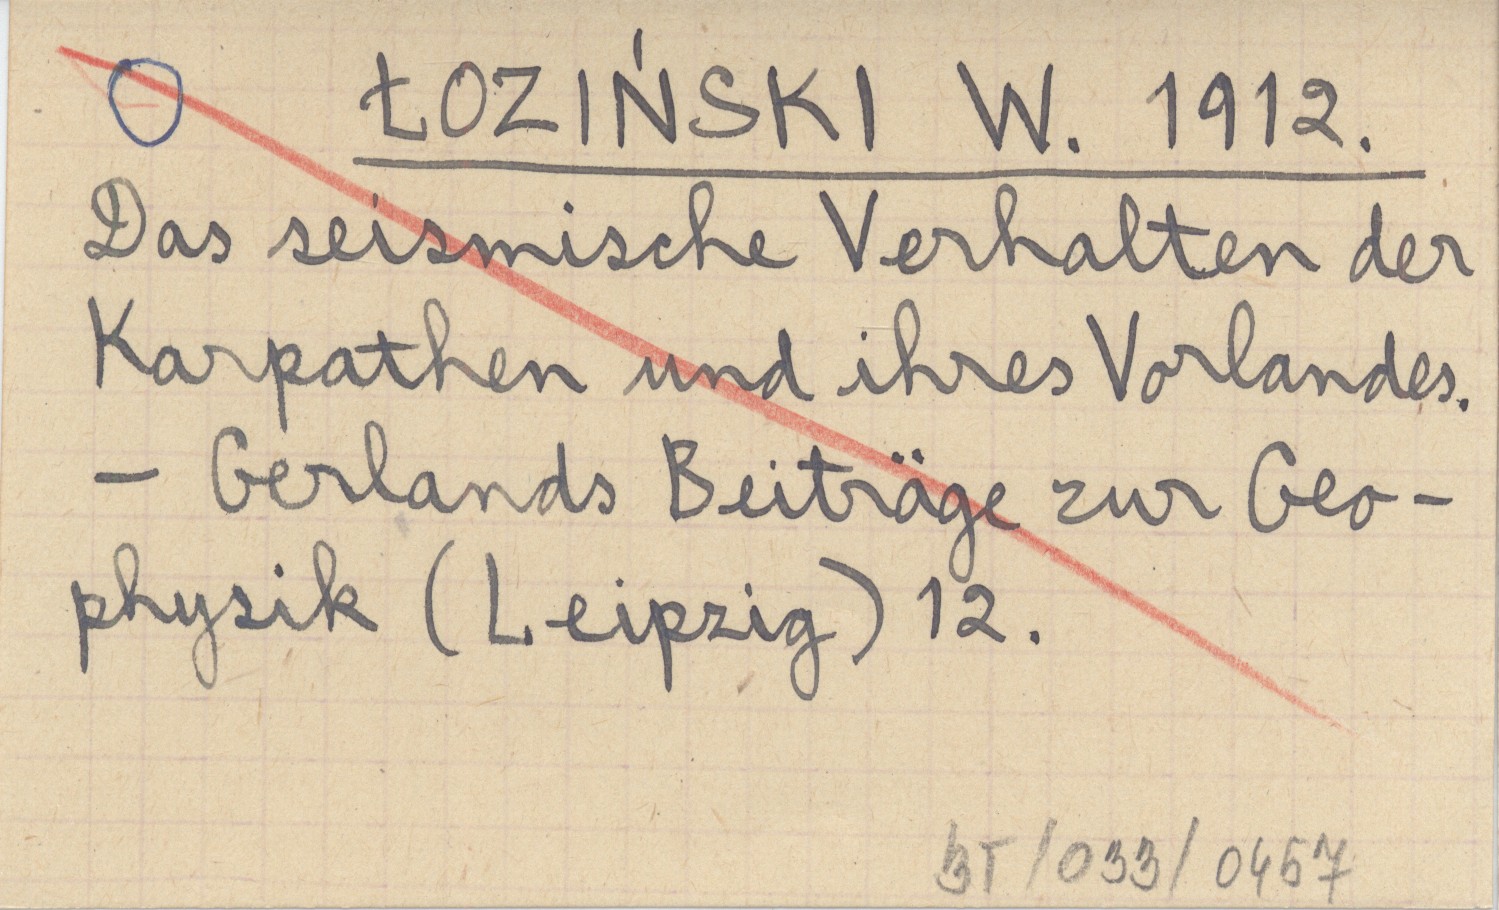 ŁOZIŃSKI W. 1912.
Das seismische Verhalten der
Karpathen und ihres Vorlandes.
— Gerlands Beiträge zur Geo-
physik (Leipzig) 12.
BT/033/0457